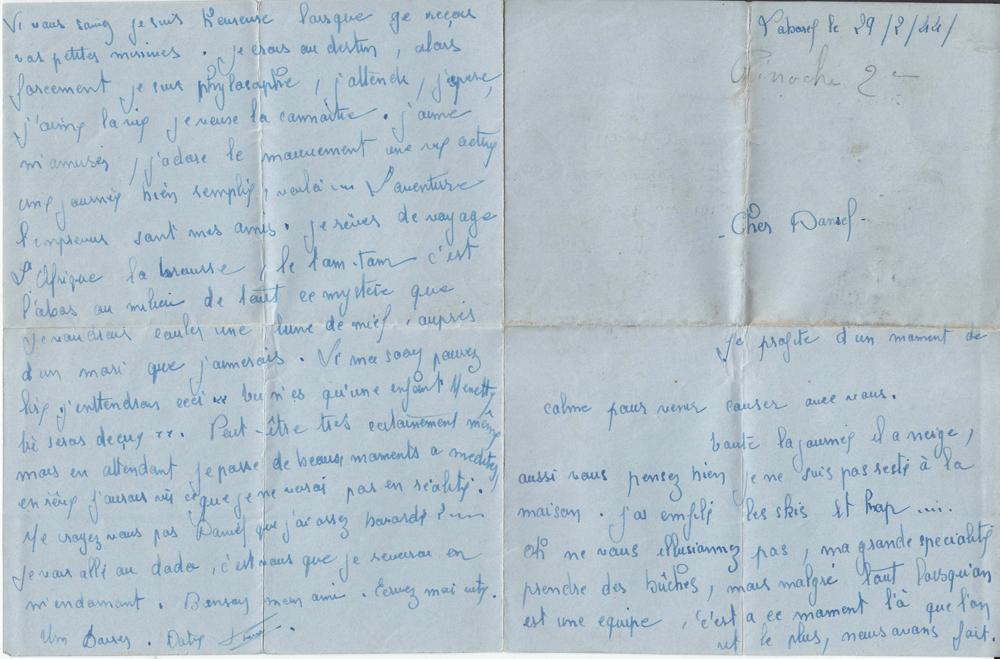 Laborel le 29/2/44/
Pinoche 2
- Cher Daniel -
je profite d'un moment de
calme pour venir causer avec vous.
toute la journée il a neigé,
aussi vous pensez bien je ne suis pas resté à la
maison. j'ai empilé les skis et hop ....
oh ne vous illusionnez pas, ma grande specialité
prendre des bûches, mais malgré tout lorsqu'on
est une equipe, c'est a ce moment là que l'on
rit le plus, nous avons fait.
Si vous saviez je suis heureuse lorsque je reçois
vos petites missives. je crois au destin, alors
forcement je suis phylosophe, j'attends, j'espere,
j'aime la vie je veuse la connaître. j'aime
m'amuser, j'adore le mouvement une vie active
une journée bien remplie, voilà ... L'aventure
l'imprevus sont mes amis. je rêves de voyage
L'Afrique la brousse, le tam-tam c'est
l'abas au milieu de tout ce mystère que
je voudrais couler une lune de miel, auprès
d'un mari que j'aimerais. Si ma soeur pouvez
lire j'enttendrais ceci .. tu n'es qu'une enfant
tè seras deçus ... Peut-être très certainement même
mais en attendant je passe de beaux moments a mediter
en rêve j'aurais vis ce que je ne verai pas en réalité.
Ne croyez vous pas Daniel que j'ai assez bavardé ? ....
je vais allé au dodo, c'est vous que je reverrai en
m'endormant. Bonsoir mon ami. Ecrivez moi vite.
Un Baiser. Daty